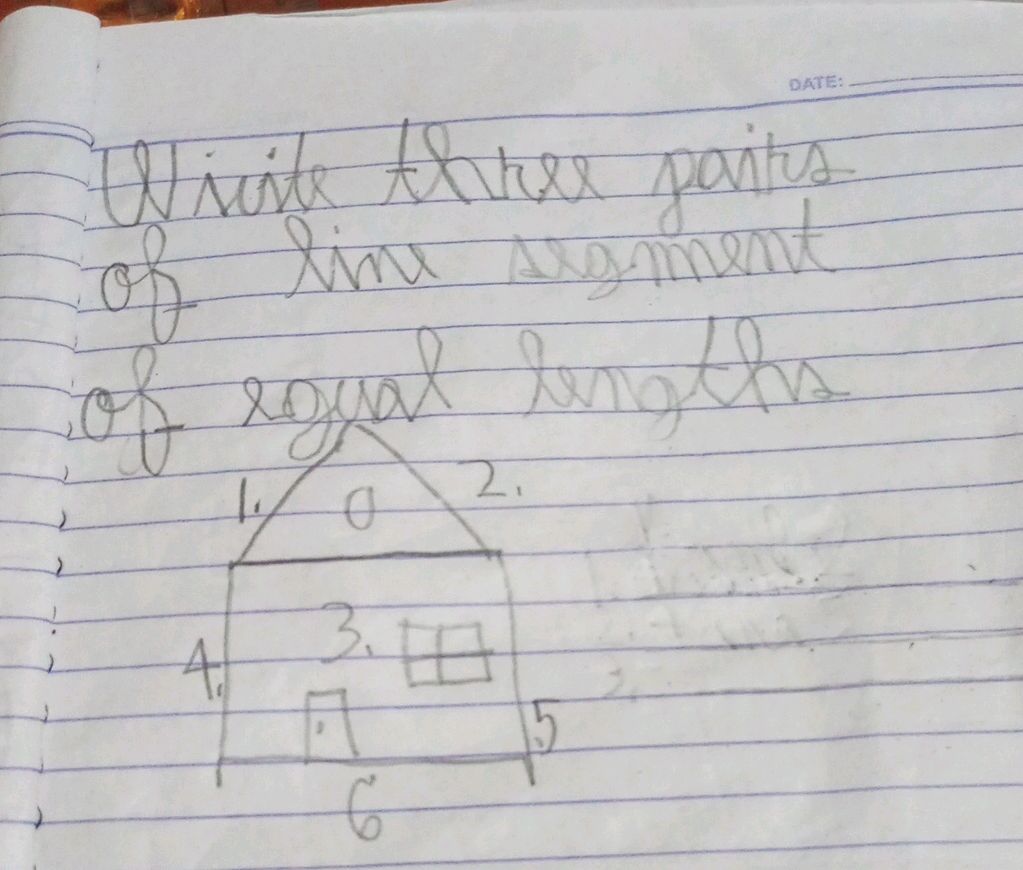 DATE:
Write three pairs
of line segment
of equal lengths
1.
2.
0
3.
4.
5
6